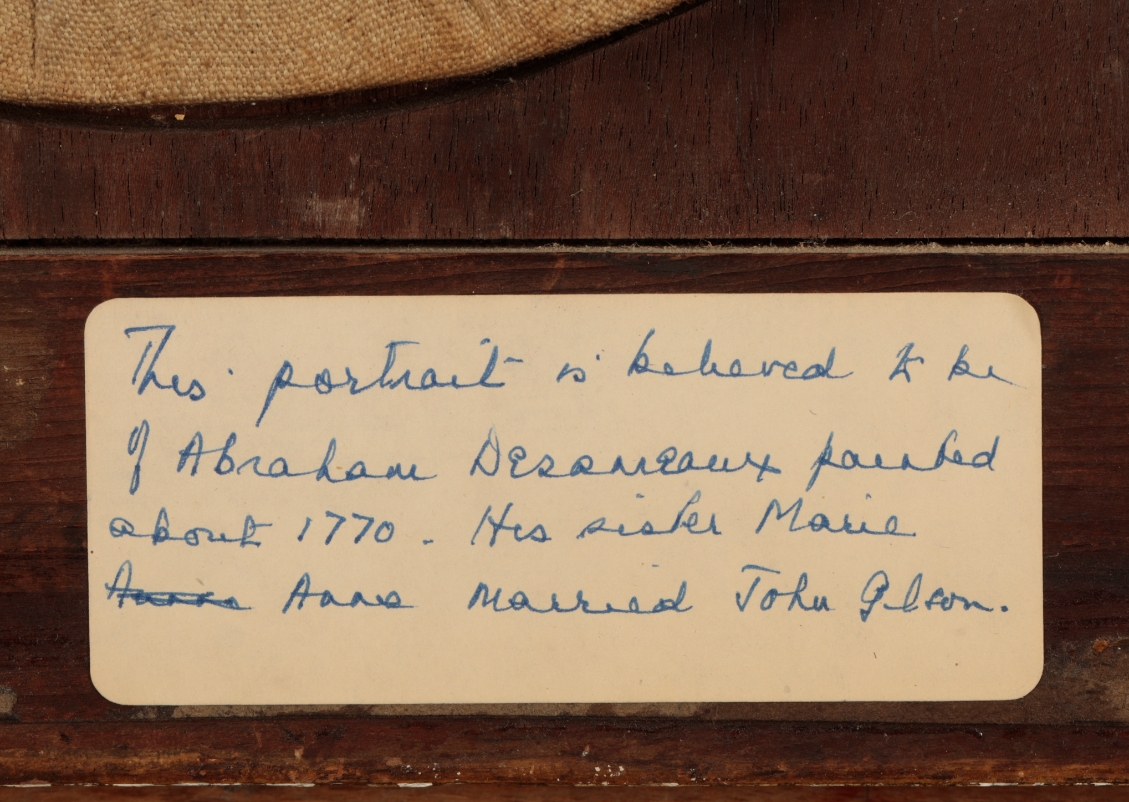 This portrait is believed to be
of Abraham Desormeaux painted
about 1770. His sister Marie
Anne married John Gibson.